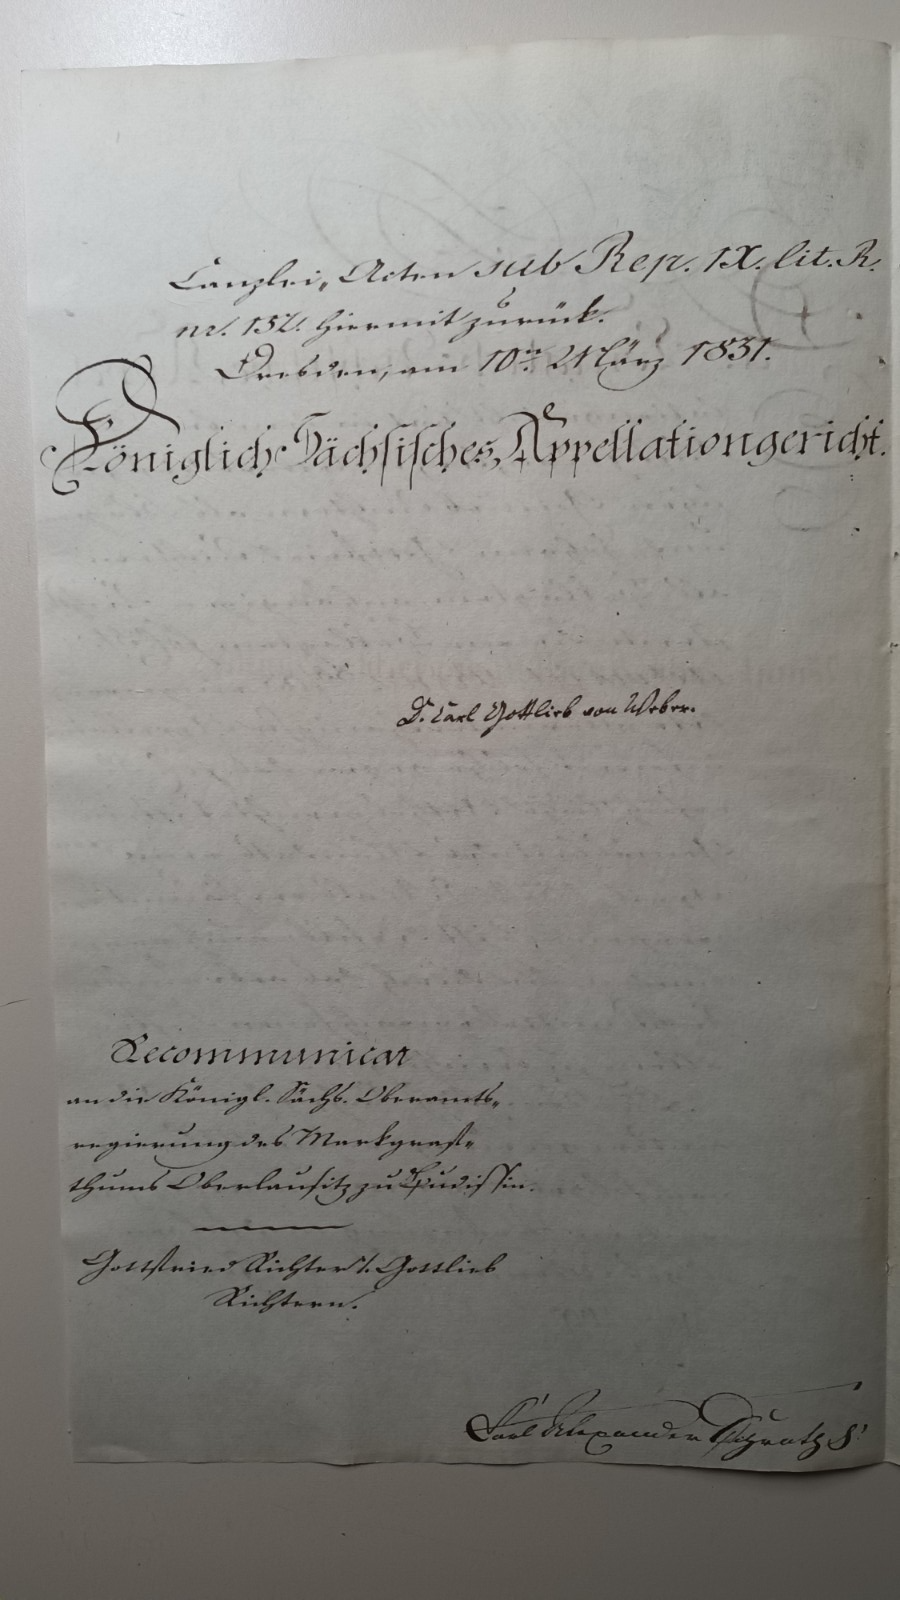 Canzlei-Acten sub Rep. IX. lit. R.
nr. 152. hiermit zurück.
Dresden, am 10n März 1831.
Königlich Sächsisches Appellationgericht.
D. Carl Gottlieb von Weber.
Recommunicat
an die Königl. Sächs. Oberamts-
regierung des Markgraf-
thums Oberlausitz zu Budissin.
Gottfried Richter ./. Gottlieb
Richtern.
Carl Alexander